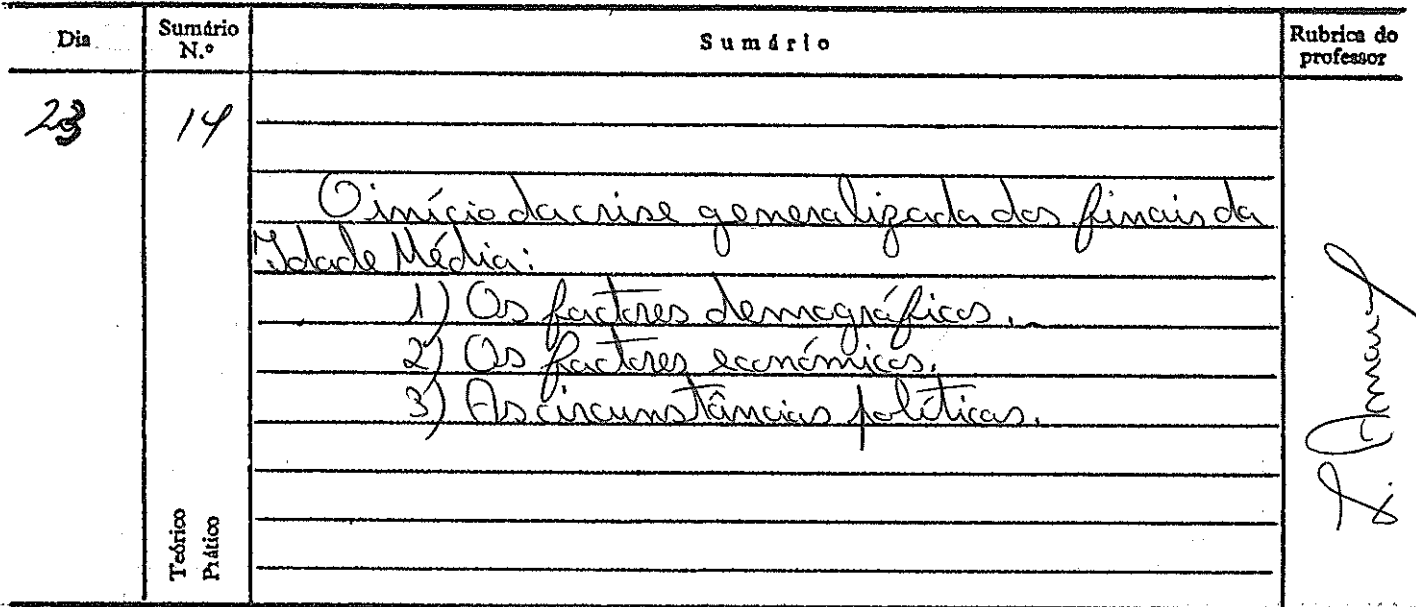 Dia
Sumário
N.º
Sumário
Rubrica do
professor
23
14
O início da crise generalizada dos finais da
Idade Média:
1) Os factores demográficos.
2) Os factores económicos.
3) As circunstâncias políticas.
Teórico
Prático